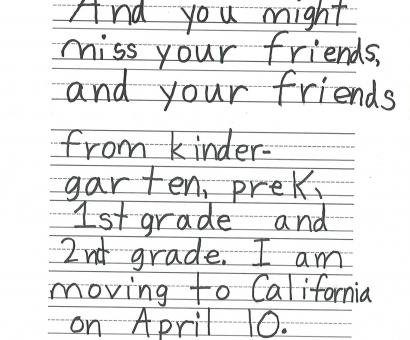 And you might
miss your friends,
and your friends
from kinder-
garten, preK,
1st grade and
2nd grade. I am
moving to California
on April 10.